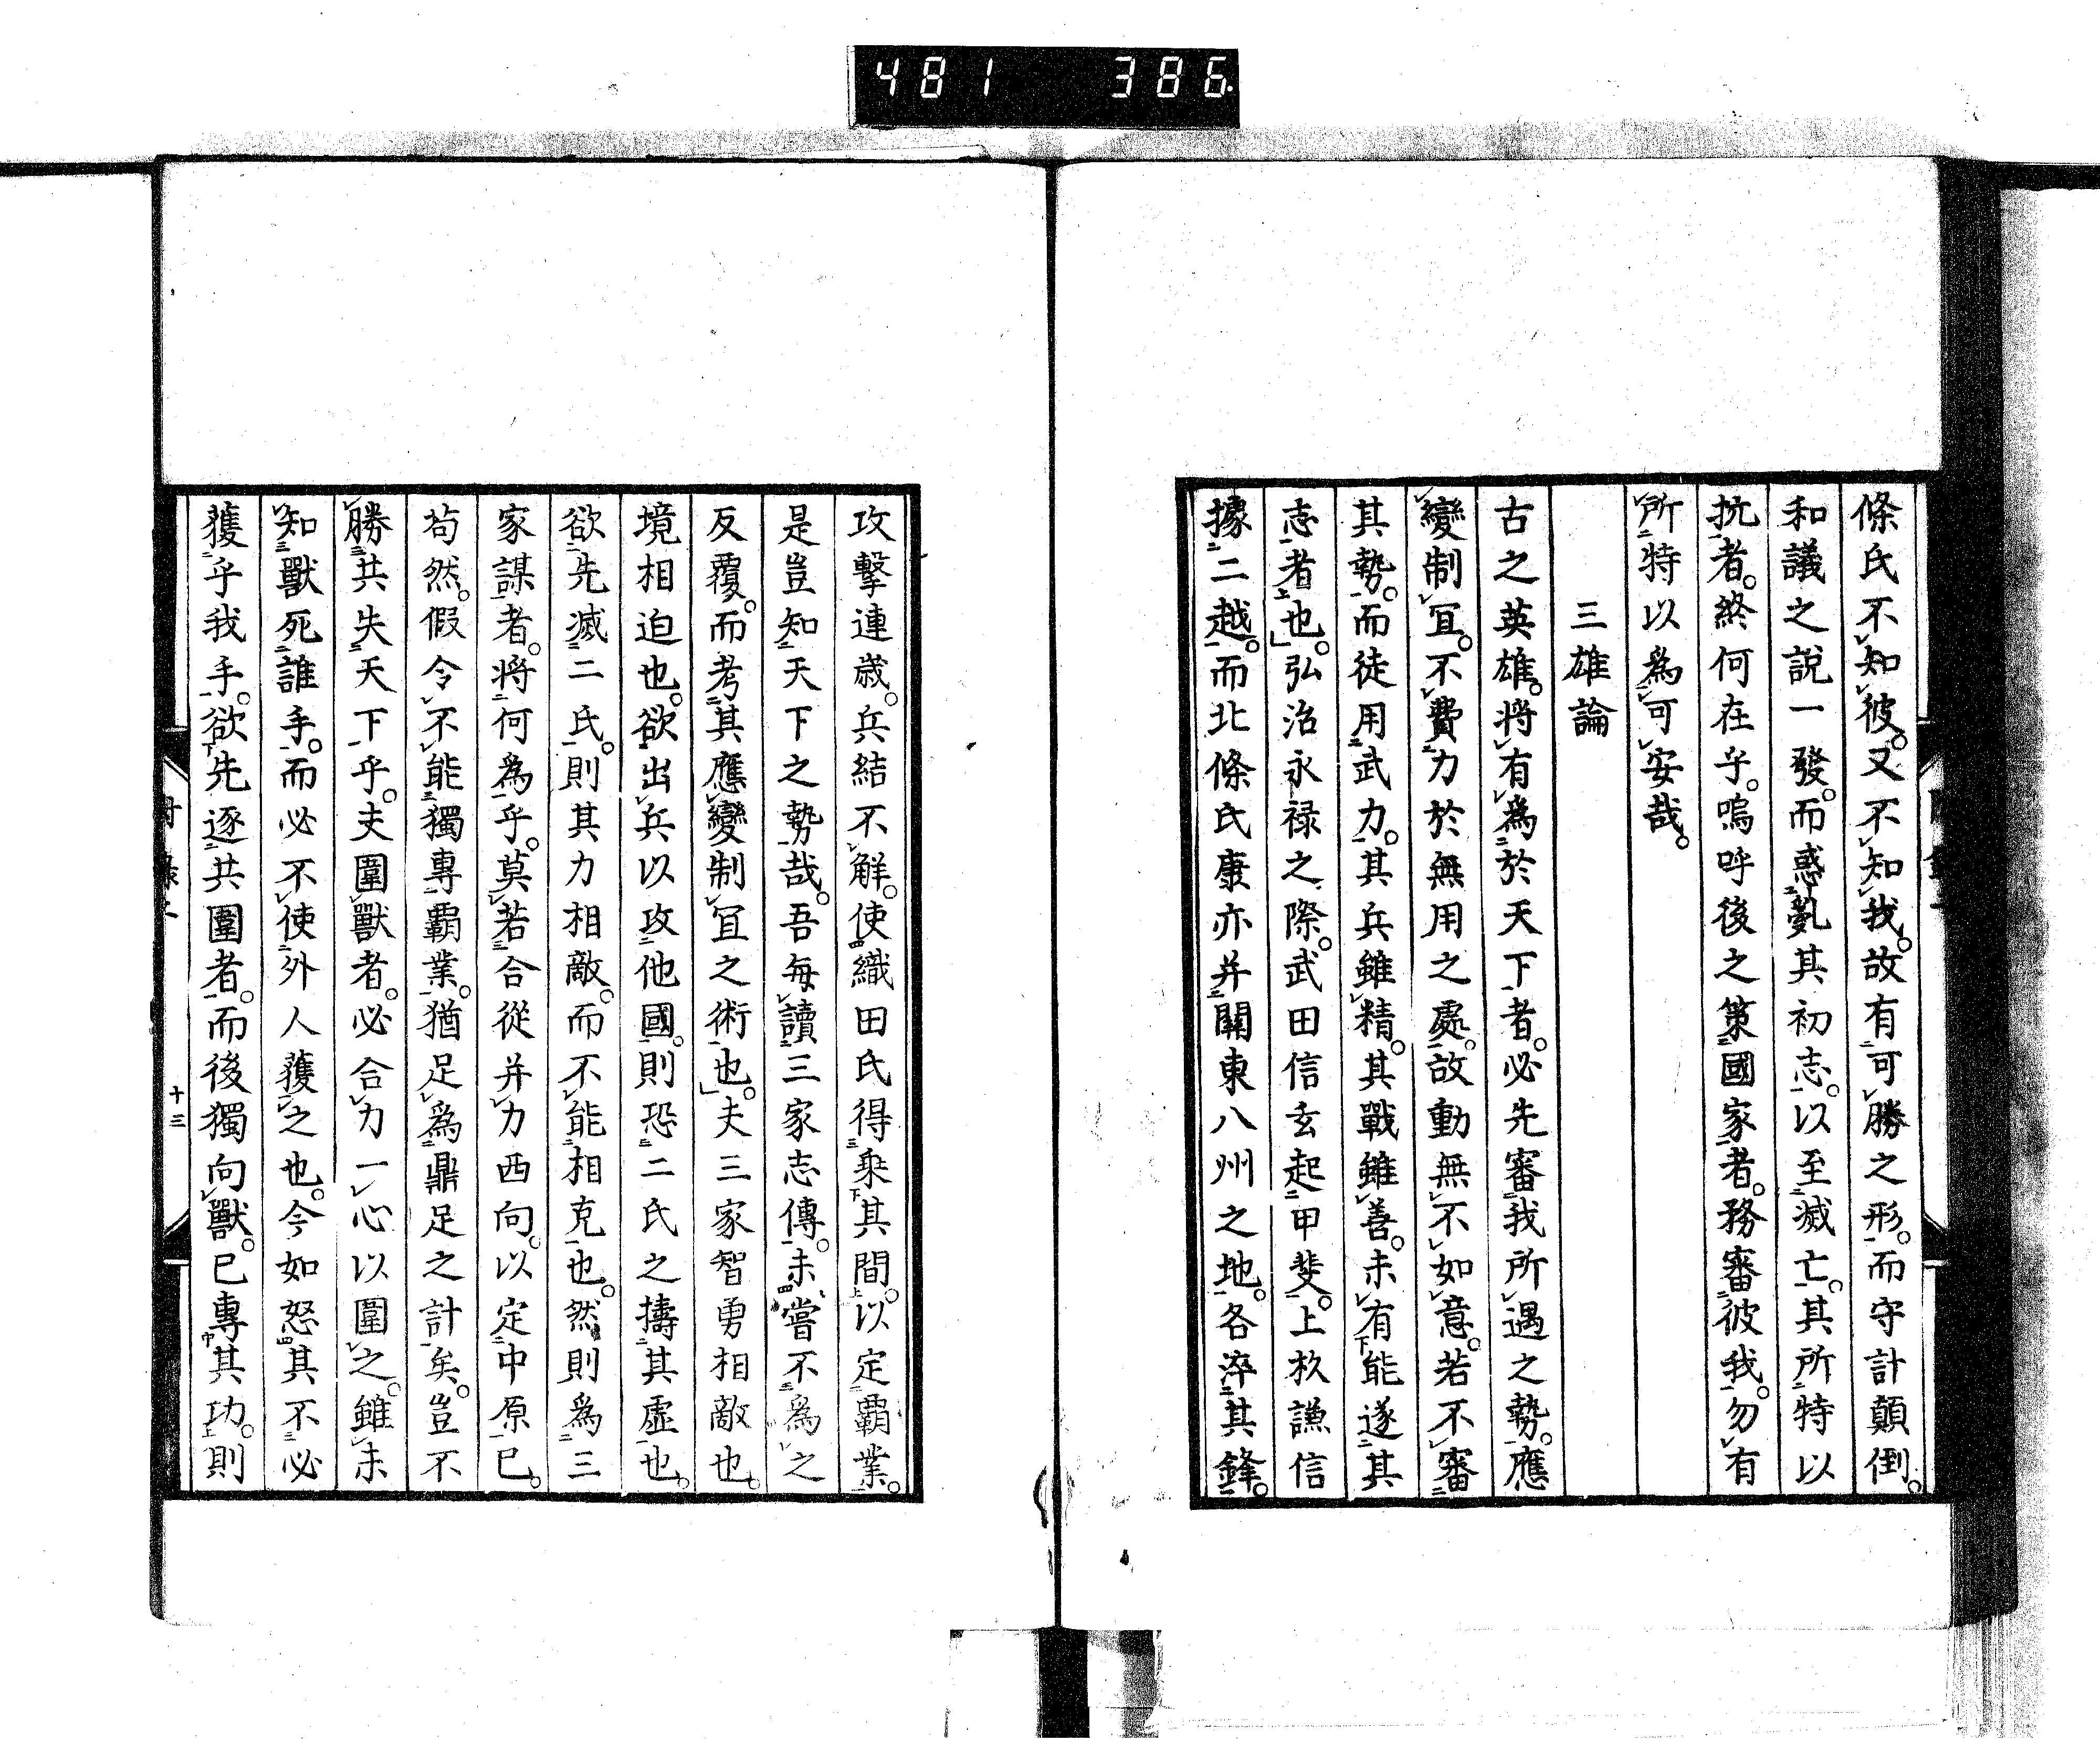 481 386
條氏不知彼。又不知我。故有可勝之形。而守計顛倒。
和議之說一發。而惑亂其初志。以至滅亡。其所特以
抗者。終何在乎。嗚呼後之策國家者。務審彼我。勿有
所特以爲可安哉。
三雄論
古之英雄。將有爲於天下者。必先審我所遇之勢。應
變制冝。不費力於無用之處。故動無不如意。若不審
其勢。而徒用武力。其兵雖精。其戰雖善。未有能遂其
志者也。弘治永禄之際。武田信玄起甲斐。上杦謙信
據二越。而北條氏康亦并關東八州之地。各淬其鋒。
攻擊連歲。兵結不解。使織田氏得乘其間。以定覇業。
是豈知天下之勢哉。吾每讀三家志傳。未嘗不爲之
反覆。而考其應變制冝之術也。夫三家智勇相敵也。
境相迫也。欲出兵以攻他國。則恐二氏之擣其虛也。
欲先滅二氏。則其力相敵。而不能相克也。然則爲三
家謀者。將何爲乎。莫若合從并力西向。以定中原已。
苟然。假令不能獨專覇業。猶足爲鼎足之計矣。豈不
勝共失天下乎。夫圍獸者。必合力一心以圍之。雖未
知獸死誰手。而必不使外人獲之也。今如怒其不必
獲乎我手。欲先逐共圍者。而後獨向獸。已專其功。則
十三